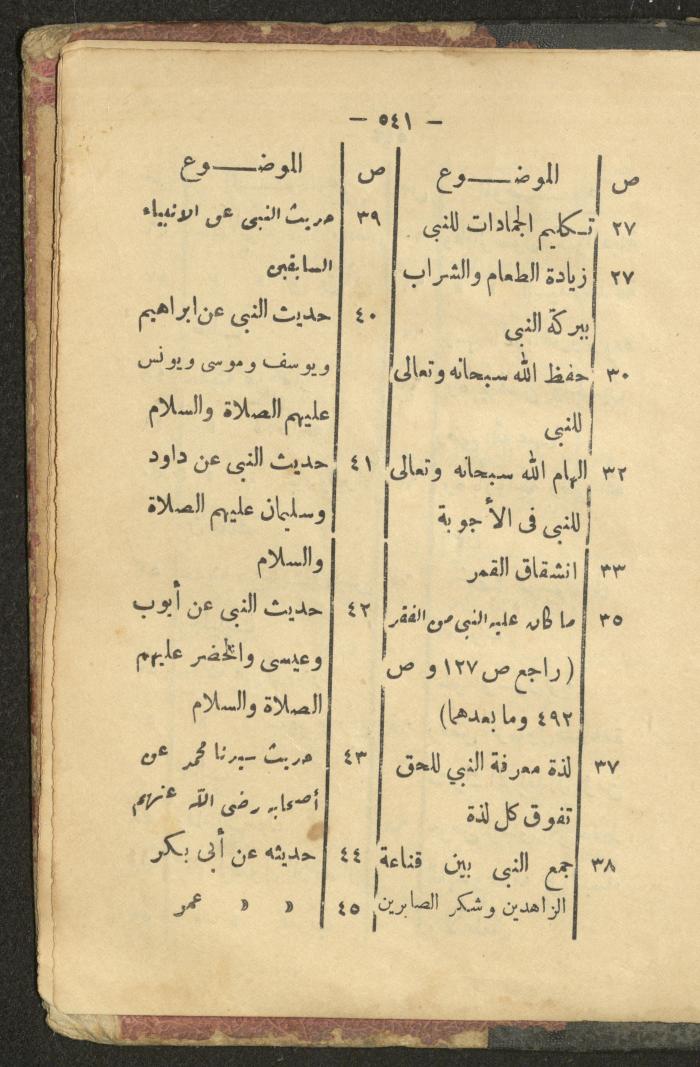 — ٥٤١ —
ص الموضـــوع
٢٧ تـكليم الجمادات للنبى
٢٧ زيادة الطعام والشراب
ببركة النبى
٣٠ حفظ الله سبحانه وتعالى
للنبى
٣٢ الهام الله سبحانه وتعالى
للنبى فى الأجوبة
٣٣ انشقاق القمر
٣٥ ما كان عليه النبى من الفقر
(راجع ص ١٢٧ و ص
٤٩٢ وما بعدهما)
٣٧ لذة معرفة النبي للحق
تفوق كل لذة
٣٨ جمع النبى بين قناعة
الزاهدين وشكر الصابرين
ص الموضـــوع
٣٩ حديث النبى عن الانبياء
السابقين
٤٠ حديث النبى عن ابراهيم
ويوسف وموسى ويونس
عليهم الصلاة والسلام
٤١ حديث النبى عن داود
وسليمان عليهم الصلاة
والسلام
٤٢ حديث النبى عن أيوب
وعيسى والخضر عليهم
الصلاة والسلام
٤٣ حديث سيدنا محمد عن
أصحابه رضى الله عنهم
٤٤ حديثه عن أبى بكر
٤٥ » » عمر